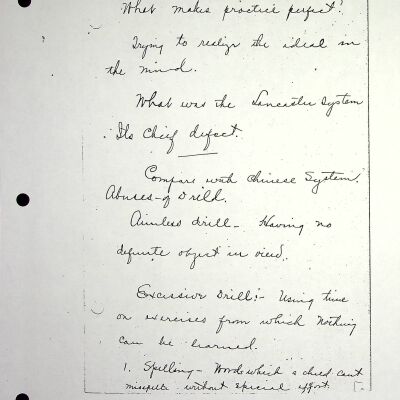 What makes practice perfect?
Trying to realize the ideal in
the mind.
What was the Lancaster System
Its Chief defect.
Compare with Chinese System.
Abuses of Drill.
Aimless drill - Having no
definite object in view.
Excessive Drill:- Using time
on exercises from which nothing
can be learned.
1. Spelling - Words which a child can't
misspell without special effort.